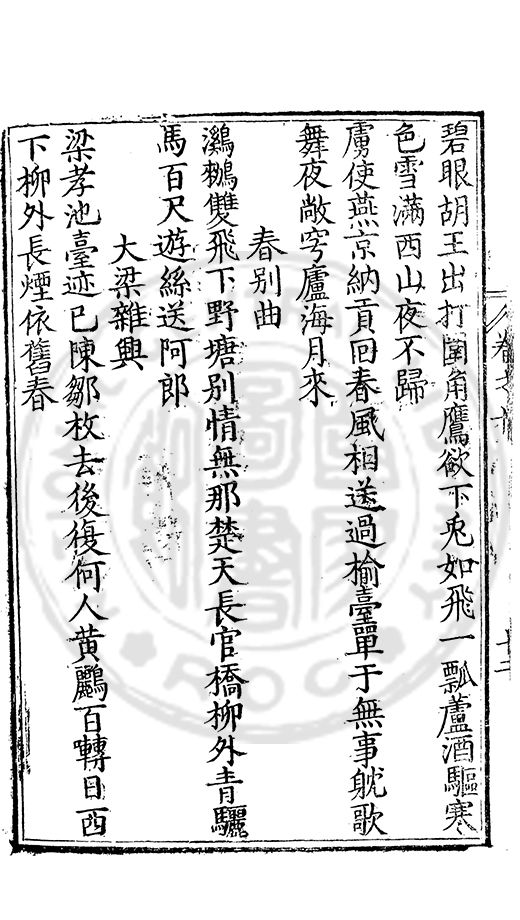 碧眼胡王出打圍角鷹欲下兎如飛一瓢蘆酒驅寒
色雪滿西山夜不歸
虜使燕京納貢回春風相送過榆臺單于無事躭歌
舞夜敞穹廬海月來
春别曲
鸂鶒雙飛下野塘别情無那楚天長官橋柳外青驪
馬百尺遊絲送阿郎
大梁雜興
梁孝池臺迹已陳鄒枚去後復何人黄鸝百囀日西
下柳外長煙依舊春